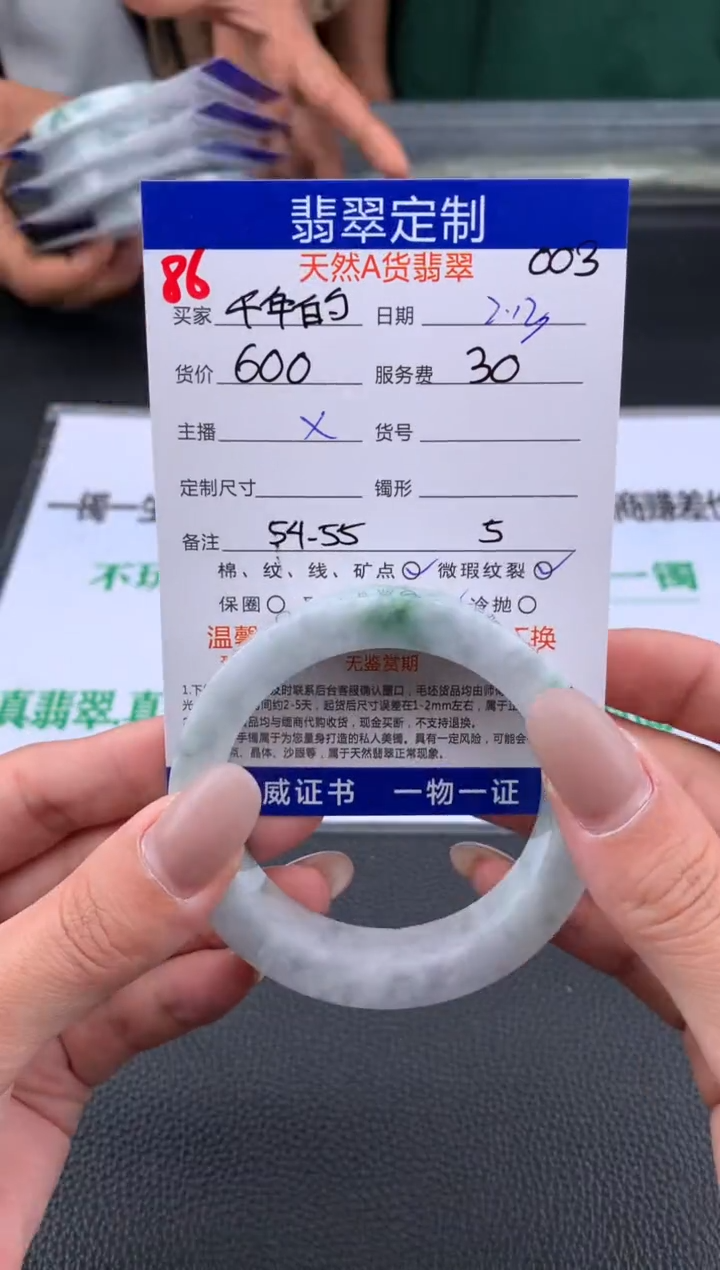 翡翠定制
86 天然A货翡翠 003
买家 千年的 日期 2.12
货价 600 服务费 30
主播 X 货号
定制尺寸 镯形
备注 54-55 5
棉、纹、线、矿点 微瑕纹裂
保圈 冷抛
温馨 换
无鉴赏期
1.下 及时联系后台客服确认圈口，毛坯货品均由师
光 间约2-5天，起货后尺寸误差在1-2mm左右，属于正
货品均与缅商代购收货，现金买断，不支持退换。
手镯属于为您量身打造的私人美镯。具有一定风险，可能会
点、晶体、沙眼等，属于天然翡翠正常现象。
威证书 一物一证
一镯一
不玩
一镯
真翡翠.真